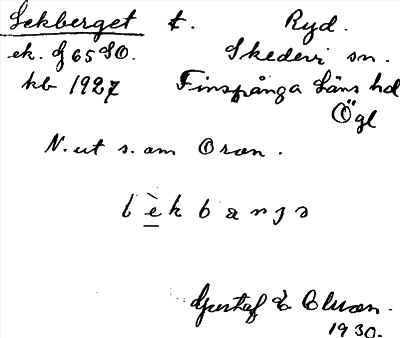 Lekberget t. Ryd.
ek. J 65 SO. Skedevi sn.
kb 1927 Finspånga läns hd
Ögl
N. ut s. om Oron.
Gustaf E
1930.